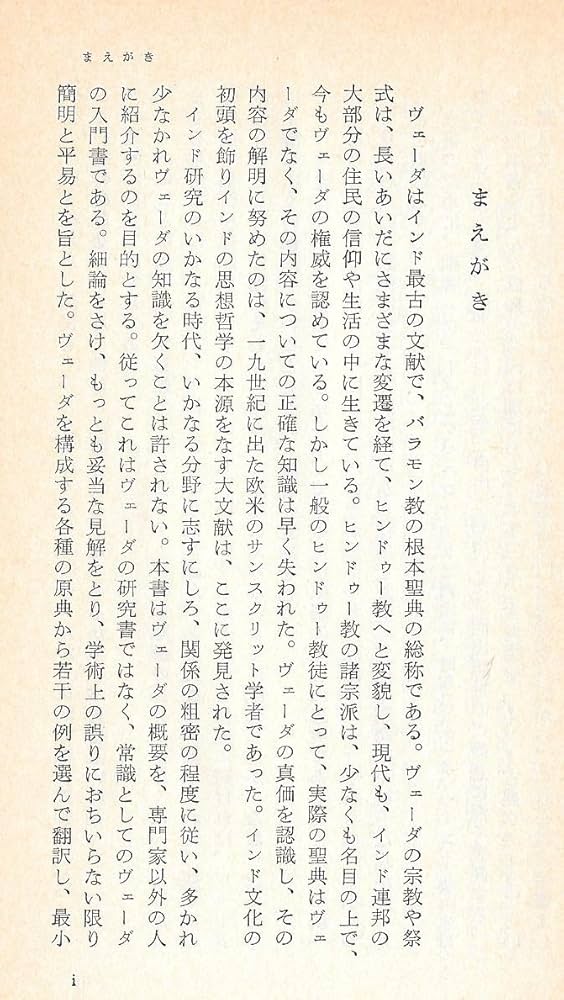 まえがき
まえがき
ヴェーダはインド最古の文献で、バラモン教の根本聖典の総称である。ヴェーダの宗教や祭
式は、長いあいだにさまざまな変遷を経て、ヒンドゥー教へと変貌し、現代も、インド連邦の
大部分の住民の信仰や生活の中に生きている。ヒンドゥー教の諸宗派は、少なくも名目の上で、
今もヴェーダの権威を認めている。しかし一般のヒンドゥー教徒にとって、実際の聖典はヴェ
ーダでなく、その内容についての正確な知識は早く失われた。ヴェーダの真価を認識し、その
内容の解明に努めたのは、一九世紀に出た欧米のサンスクリット学者であった。インド文化の
初頭を飾りインドの思想哲学の本源をなす大文献は、ここに発見された。
インド研究のいかなる時代、いかなる分野に志すにしろ、関係の粗密の程度に従い、多かれ
少なかれヴェーダの知識を欠くことは許されない。本書はヴェーダの概要を、専門家以外の人
に紹介するのを目的とする。従ってこれはヴェーダの研究書ではなく、常識としてのヴェーダ
の入門書である。細論をさけ、もっとも妥当な見解をとり、学術上の誤りにおちいらない限り
簡明と平易とを旨とした。ヴェーダを構成する各種の原典から若干の例を選んで翻訳し、最小
i